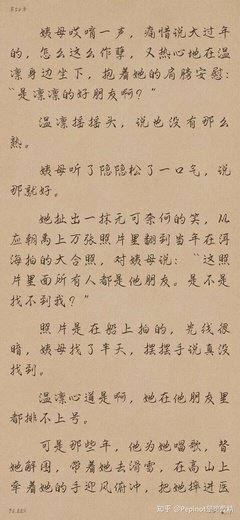 姨母哎唷一声，痛惜说大过年
的，怎么这么作孽，又热心地在温
凛身边坐下，抱着她的肩膀安慰：
“是凛凛的好朋友啊？”
温凛摇摇头，说也没有那么
熟。
姨母听了隐隐松了一口气，说
那就好。
她扯出一抹无可奈何的笑，从
应朝禹上万张照片里翻到当年在洱
海拍的大合照，对姨母说：“这照
片里面所有人都是他朋友。是不是
找不到我？”
照片是在船上拍的，光线很
暗，姨母找了半天，摆摆手说真没
找到。
温凛心道是啊，她在他朋友里
都排不上号。
可是那些年，他为她唱歌，替
她解围，带着她去滑雪，在高山上
牵着她的手迎风俯冲，把她摔进医
知乎 @Pepinot坚果爱精